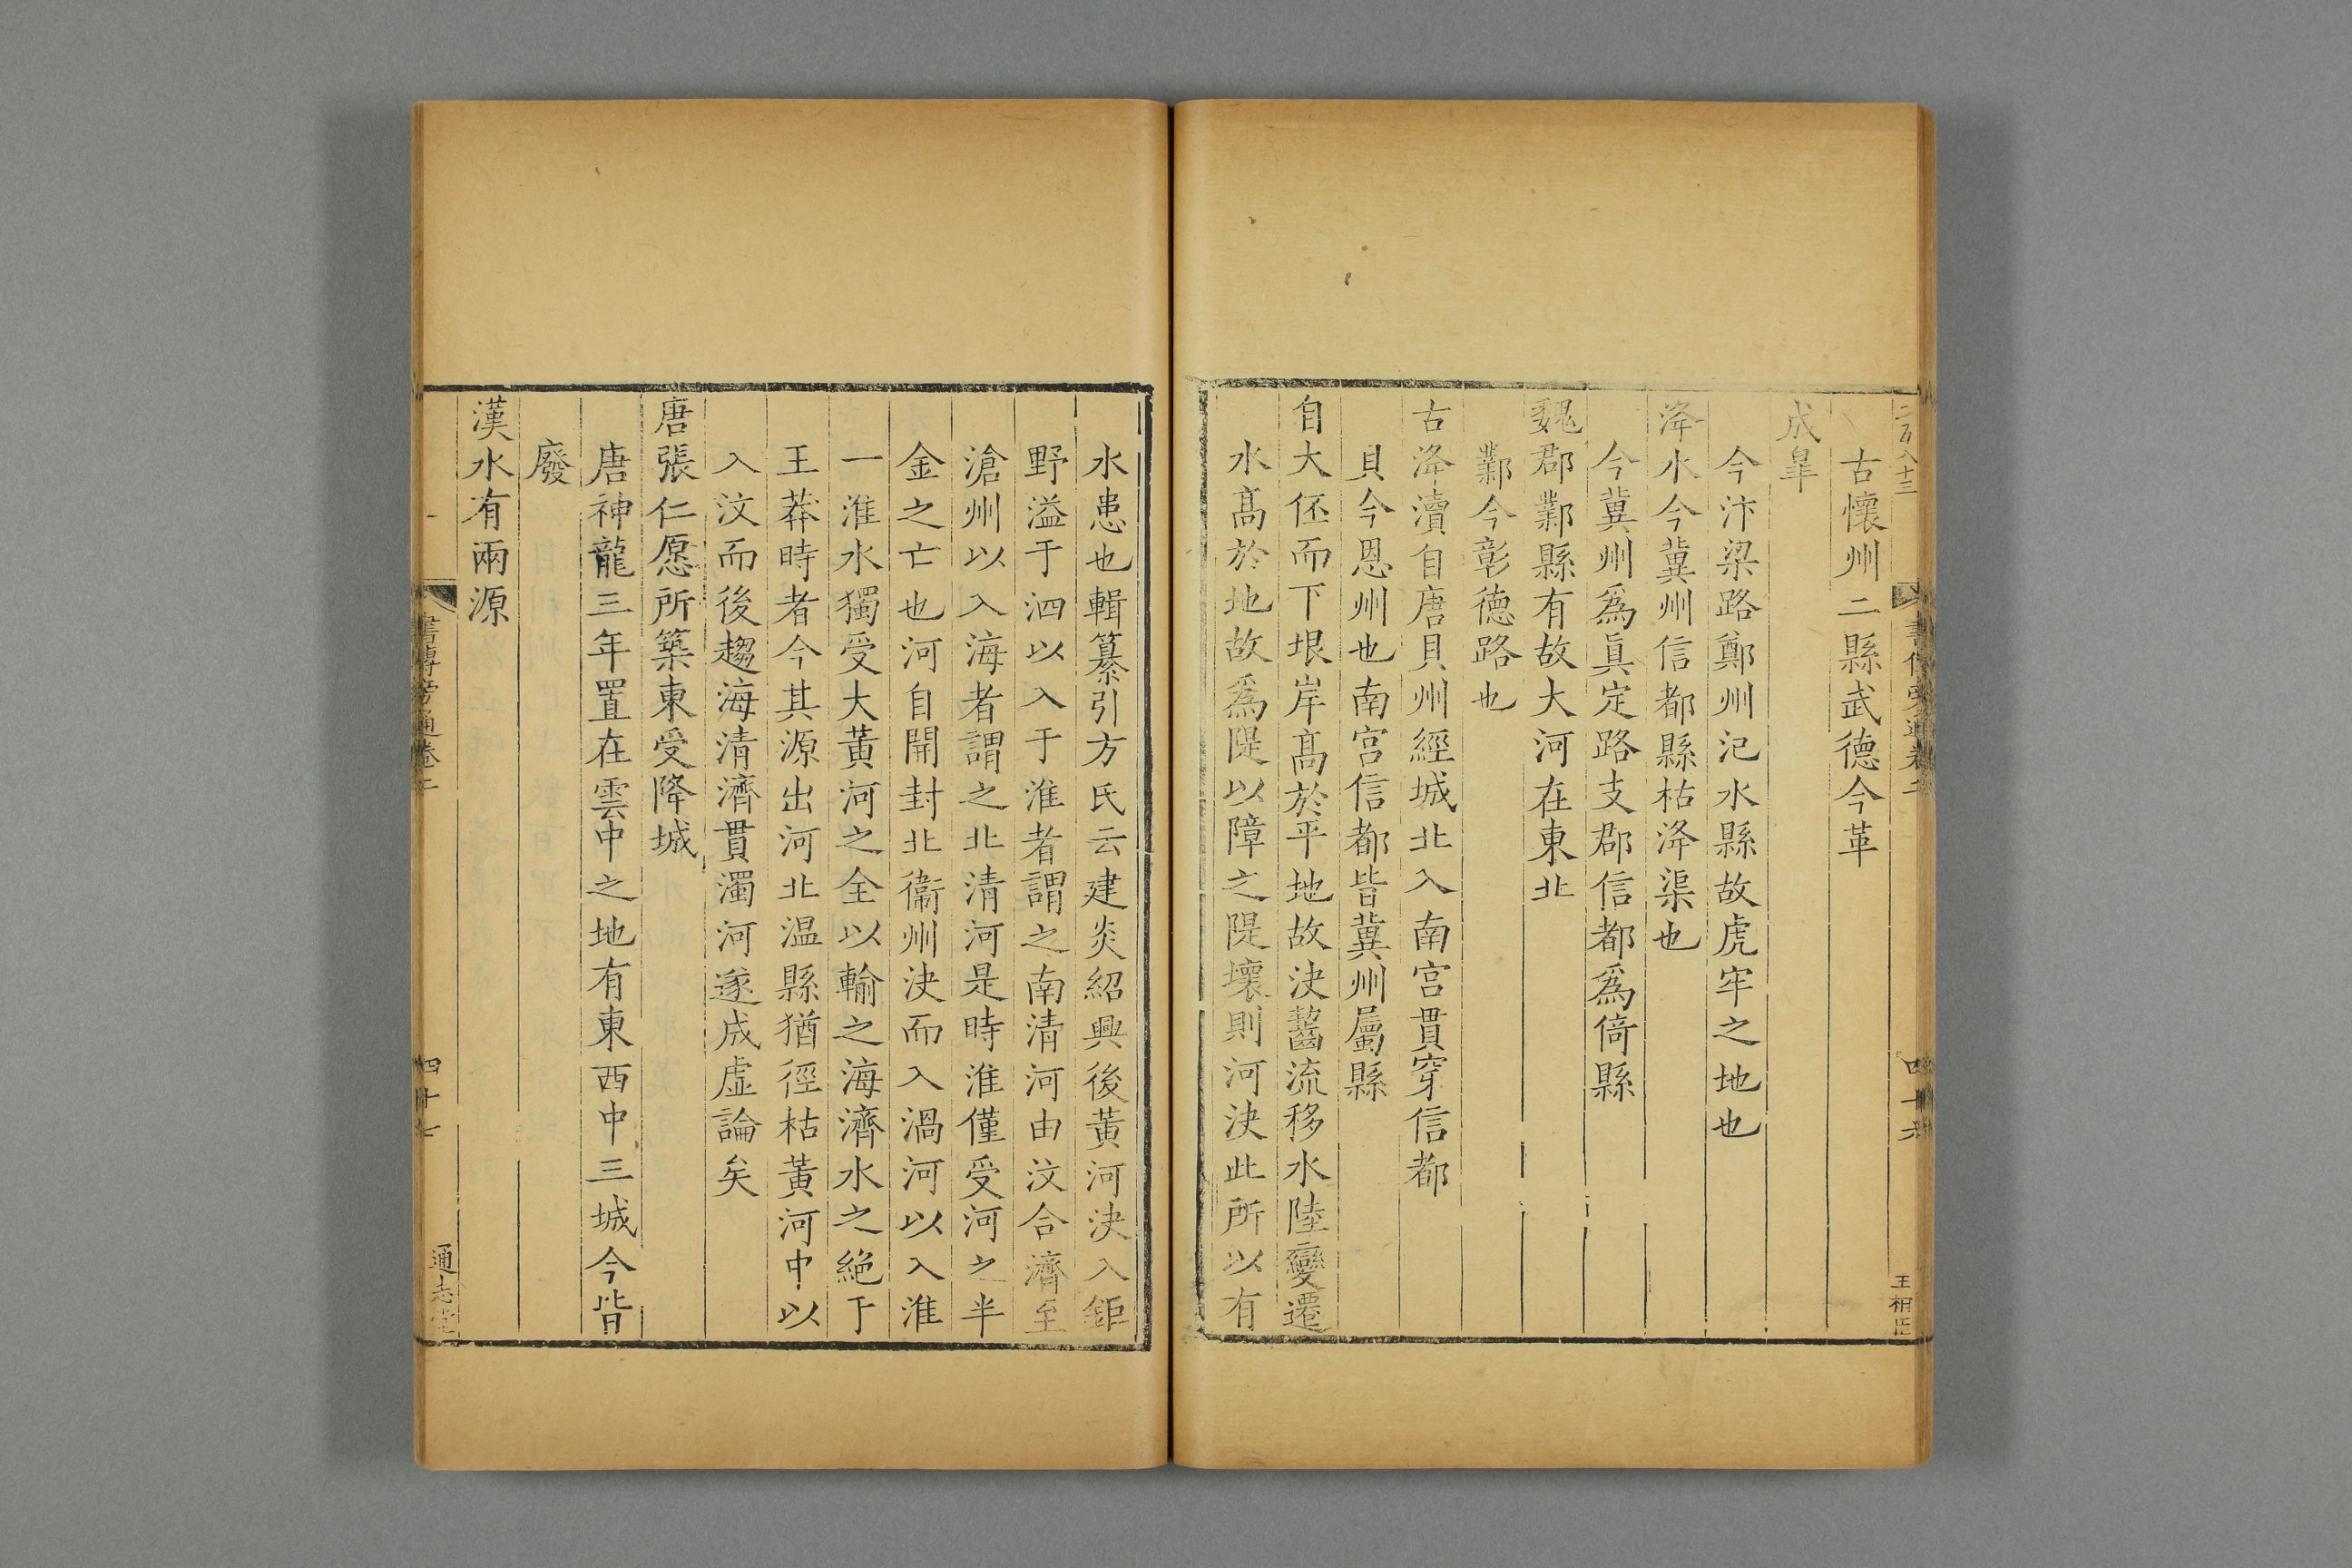 二百八十三
書傳旁通卷二
四十六
王相臣
古懷州二縣武德今革
成皐
今汴梁路鄭州汜水縣故虎牢之地也
洚水今冀州信都縣枯洚渠也
今冀州爲眞定路支郡信都爲倚縣
魏郡鄴縣有故大河在東北
鄴今彰德路也
古洚瀆自唐貝州經城北入南宫貫穿信都
貝今恩州也南宫信都皆冀州屬縣
自大伾而下垠岸髙於平地故决齧流移水陸變遷
水髙於地故爲隄以障之隄壞則河决此所以有
水患也輯纂引方氏云建炎紹興後黃河决入鉅
野溢于泗以入于淮者謂之南清河由汶合濟至
滄州以入海者謂之北清河是時淮僅受河之半
金之亡也河自開封北衞州决而入渦河以入淮
一淮水獨受大黃河之全以輸之海濟水之絶于
王莽時者今其源出河北温縣猶徑枯黃河中以
入汶而後趨海清濟貫濁河遂成虛論矣
唐張仁愿所築東受降城
唐神龍三年置在雲中之地有東西中三城今皆
廢
漢水有兩源
書傳旁通卷二
四十七
通志堂